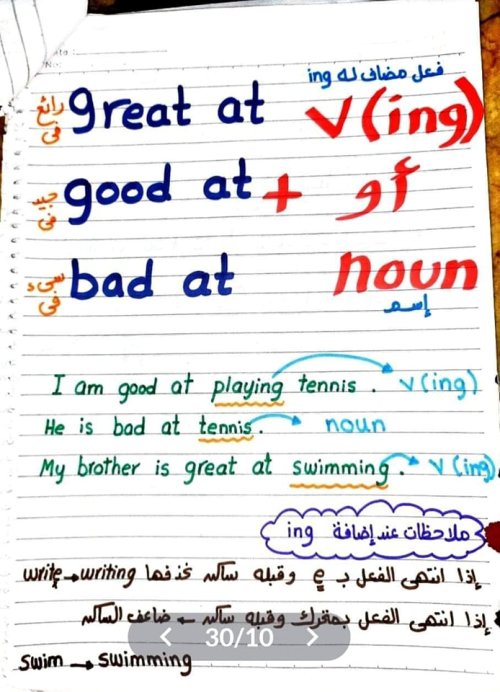 فعل مضاف له ing
رائع في great at V(ing)
جيد في good at + أو
سيء في bad at noun
إسم
I am good at playing tennis . V(ing)
He is bad at tennis. noun
My brother is great at swimming. V(ing)
ملاحظات عند إضافة ing
إذا انتهى الفعل بـ e وقبله ساكن نحذفها write → writing
إذا انتهى الفعل بمتحرك وقبله ساكن ← ضاعف الساكن
30/10
swim → swimming